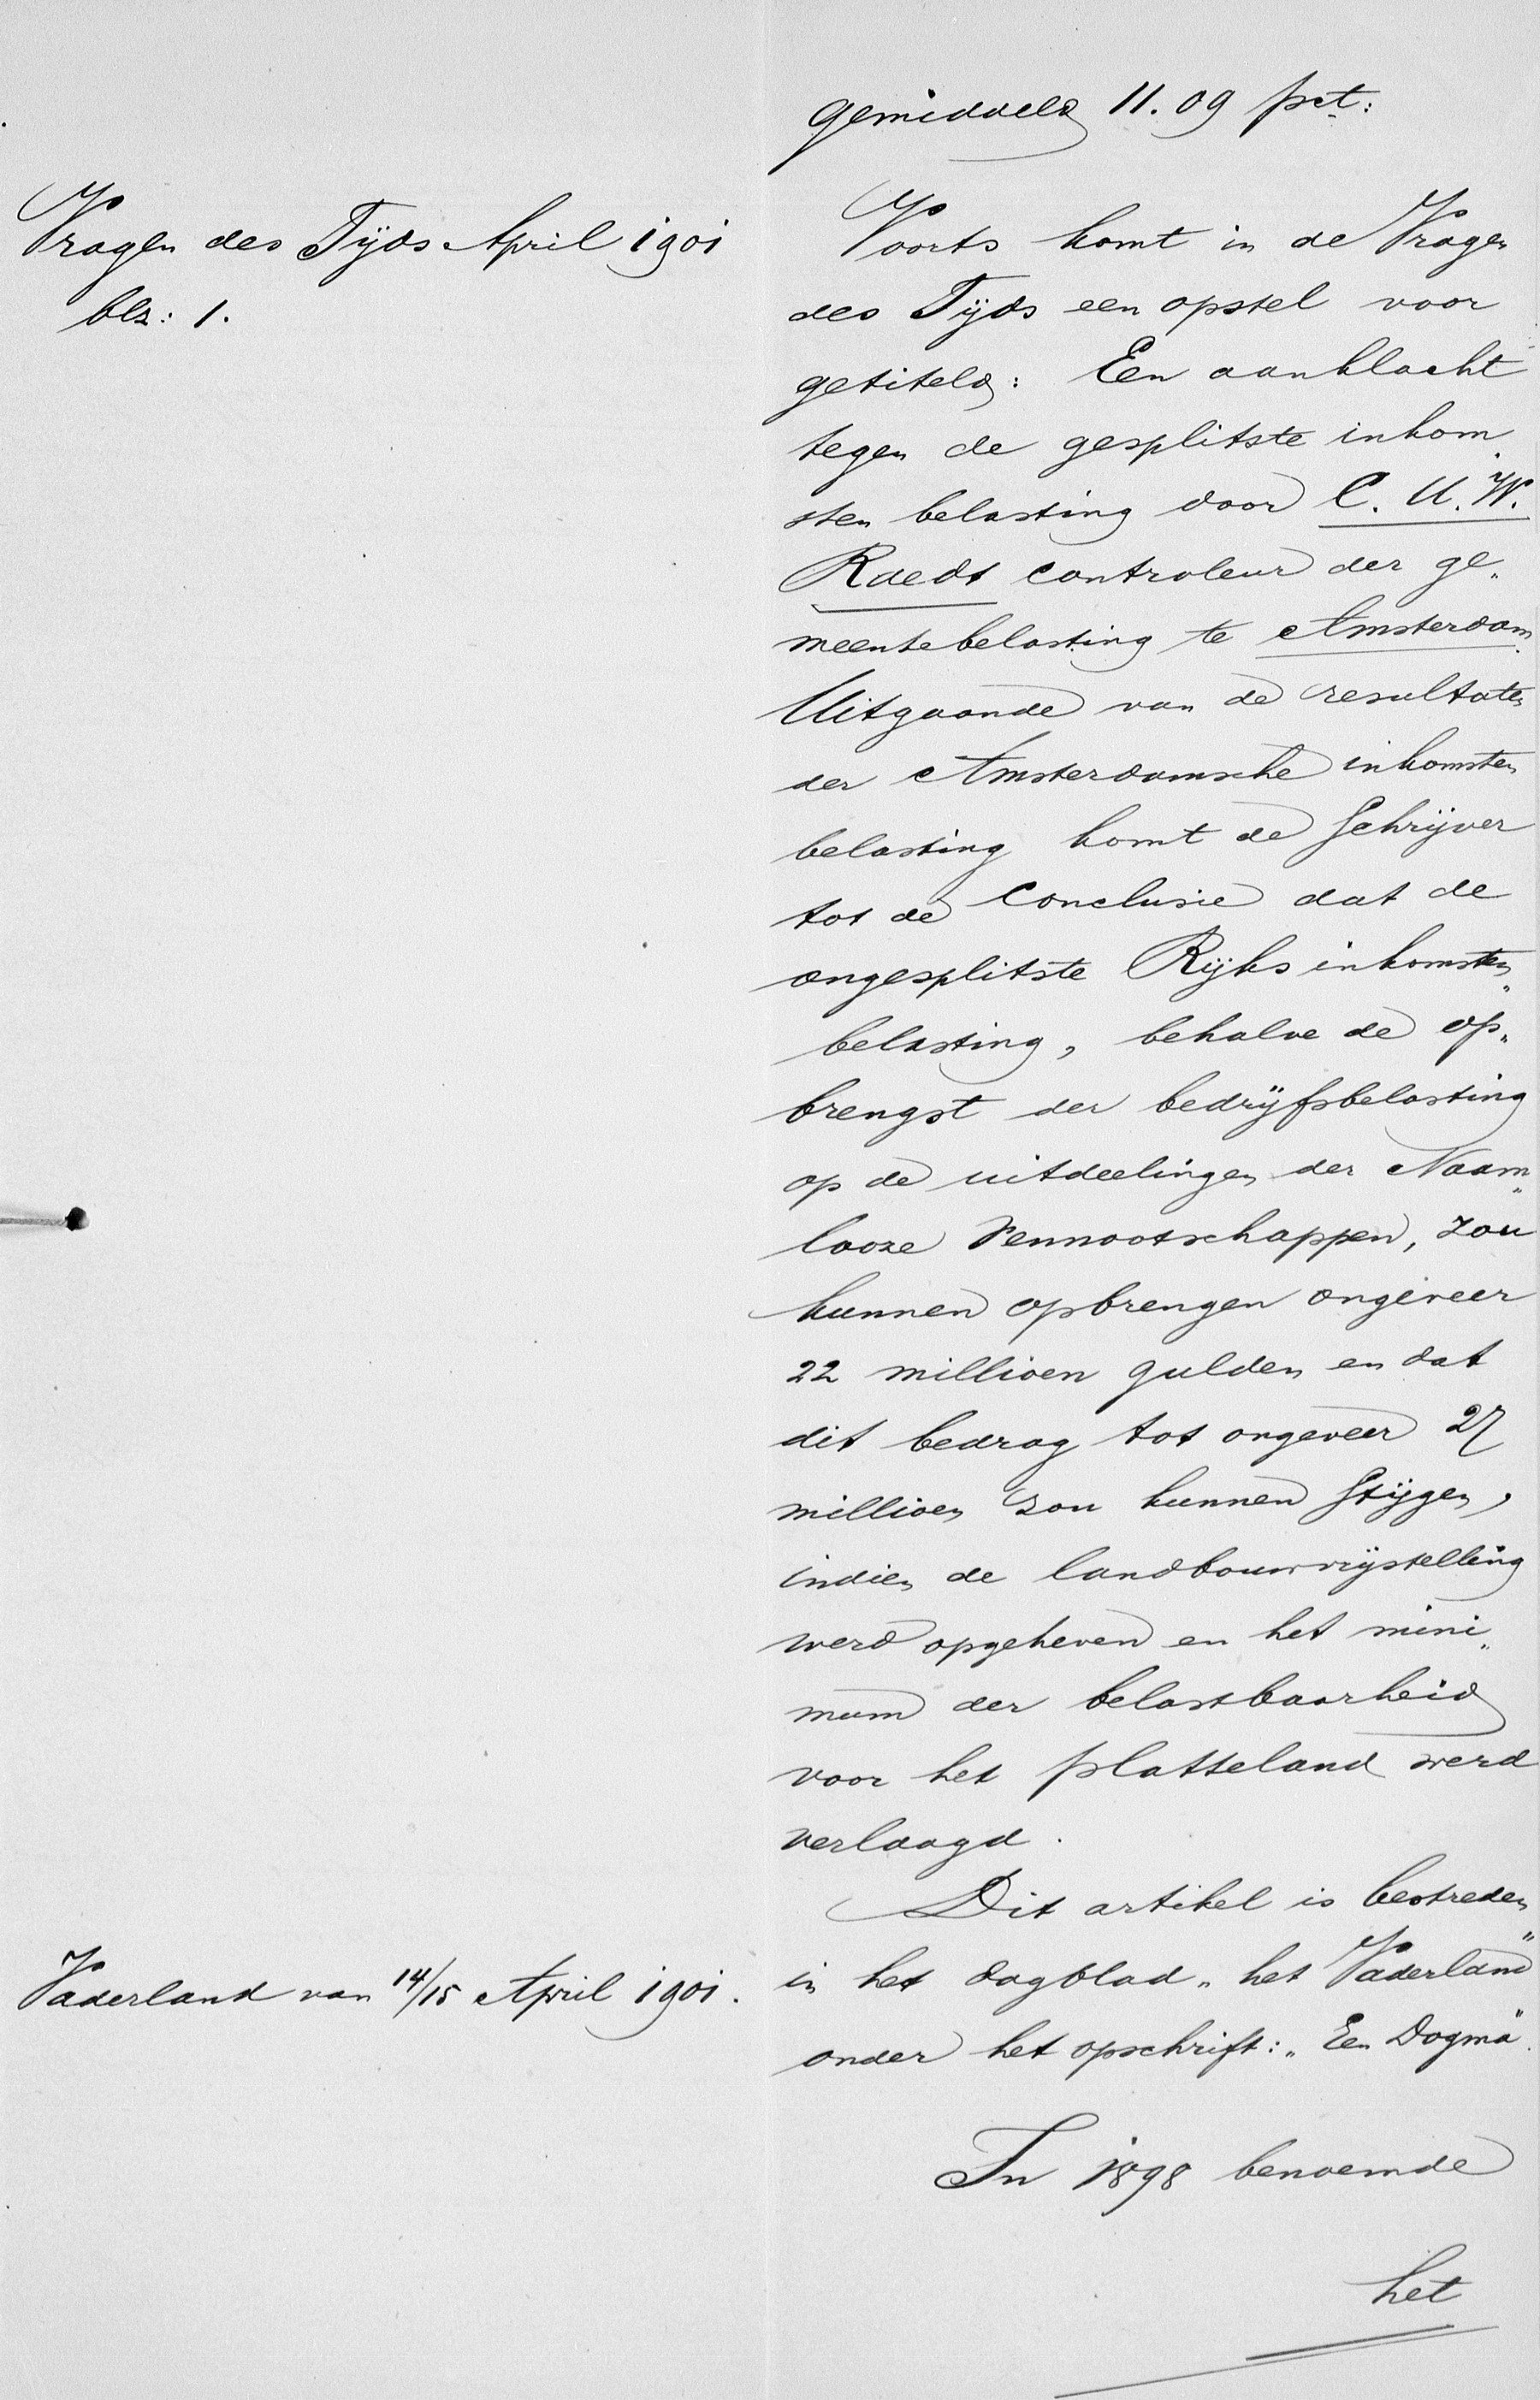 gemiddeld 11.09 pct:
Vragen des Tijds April 1901
blz: 1.
Voorts komt in de Vragen
des Tijds een opstel voor
getiteld: Een aanklacht
tegen de gesplitste inkom
sten belasting door C. U. W.
Raedt controleur der ge„
meentebelasting te Amsterdam.
Uitgaande van de resultaten
der Amsterdamsche inkomsten
belasting komt de Schrijver
tot de Conclusie dat de
ongesplitste Rijks inkomsten„
belasting, behalve de op„
brengst der bedrijfsbelasting
op de uitdeelingen der Naam„
looze Vennootschappen, zou
kunnen opbrengen ongeveer
22 millioen gulden en dat
dit bedrag tot ongeveer 27
millioen zou kunnen Stijgen,
indien de landbouwvrijstelling
werd opgeheven en het mini„
mum der belastbaarheid
voor het platteland werd
verlaagd.
Dit artikel is bestreden
Vaderland van 14/15 April 1901.
in het dagblad „het Vaderland"
onder het opschrift: „Een Dogma".
In 1898 benoemde
het